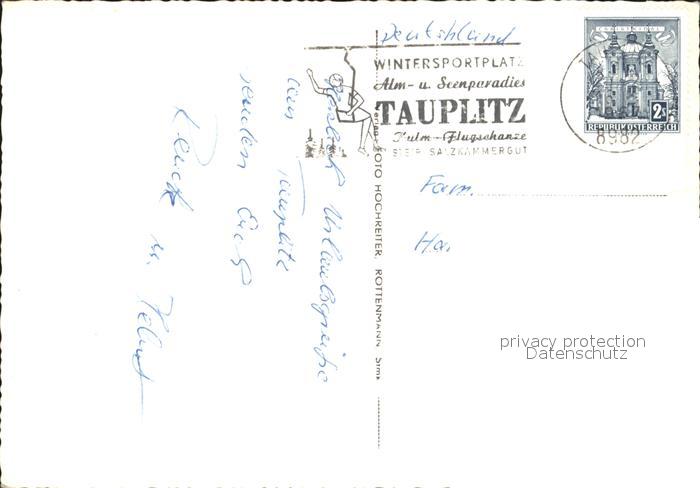 Deutschland
WINTERSPORTPLATZ
Alm- u. Seenparadies
TAUPLITZ
Kulm-Flugschanze
STEIR SALZKAMMERGUT
CHRISTKINDL
2S
REPUBLIK ÖSTERREICH
8982
Fam.
Ha
privacy protection
Datenschutz
FOTO HOCHREITER, ROTTENMANN Stmk
Urlaubsgrüße
aus Tauplitz
senden Euch
u. Helmut